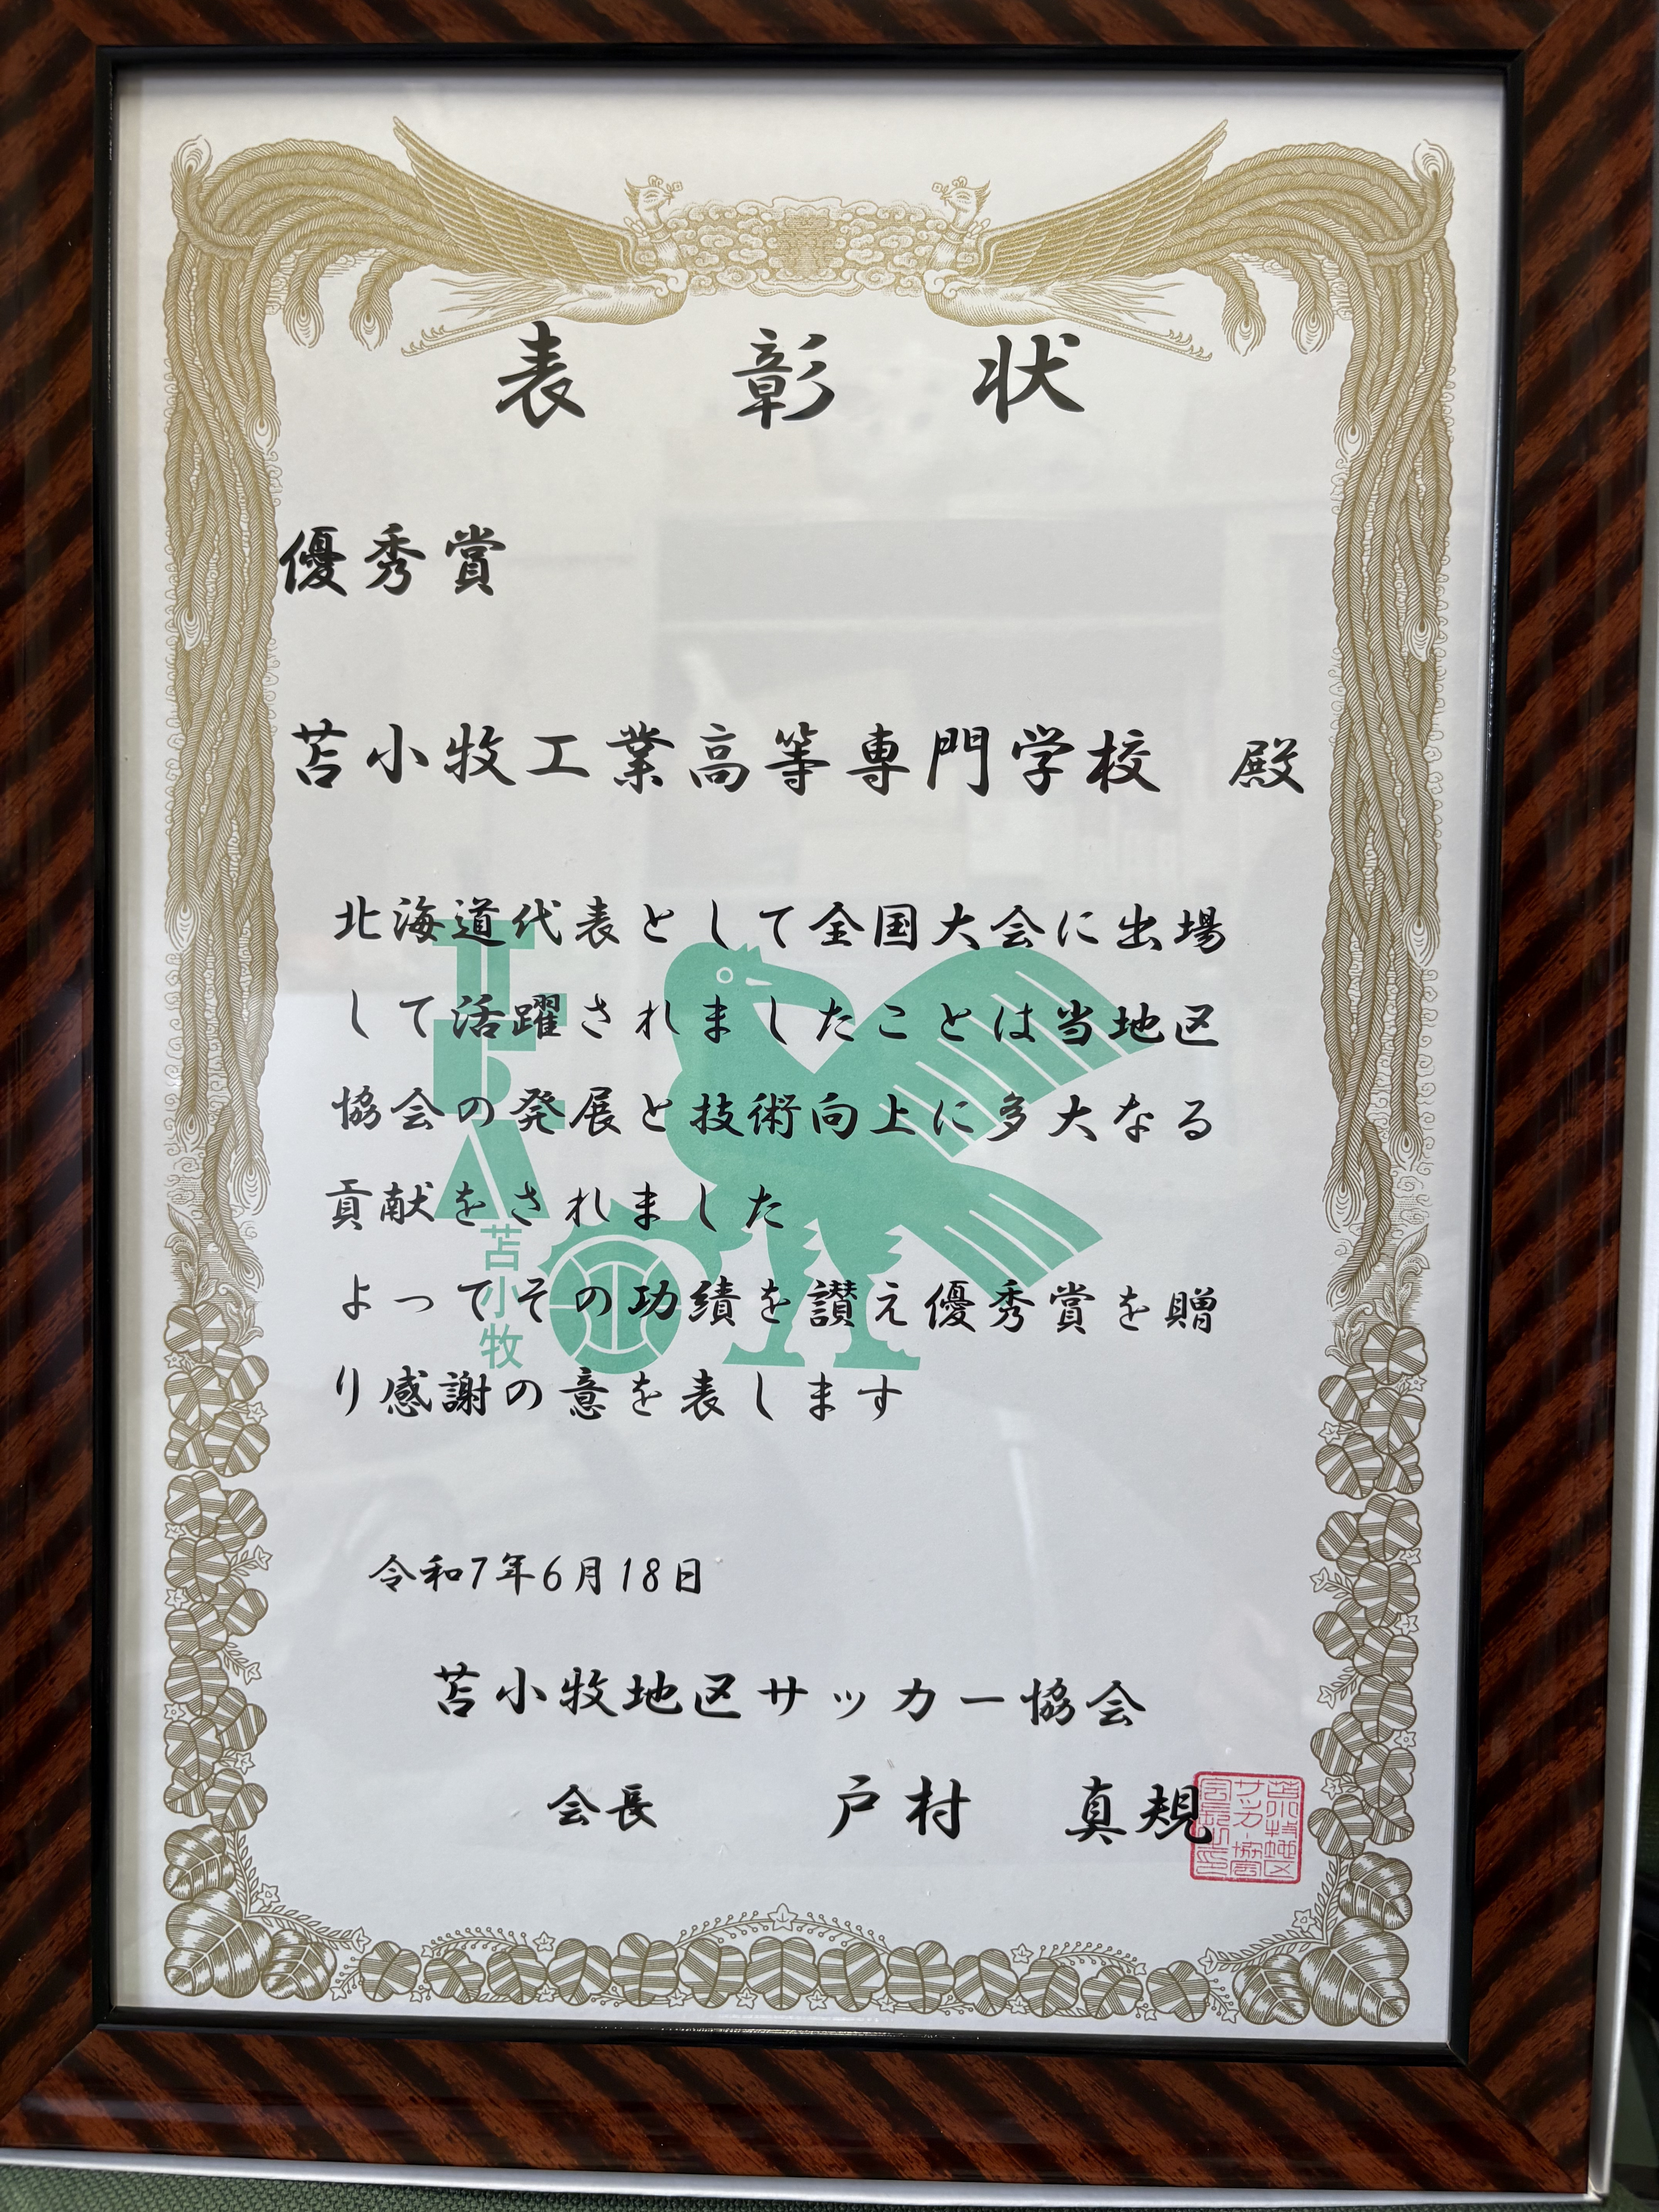 表彰状
優秀賞
苫小牧工業高等専門学校 殿
北海道代表として全国大会に出場
して活躍されましたことは当地区
協会の発展と技術向上に多大なる
貢献をされました
よってその功績を讃え優秀賞を贈
り感謝の意を表します
TFA
苫小牧
令和7年6月18日
苫小牧地区サッカー協会
会長 戸村 真規
苫小牧地区
サッカー協会
会長之印